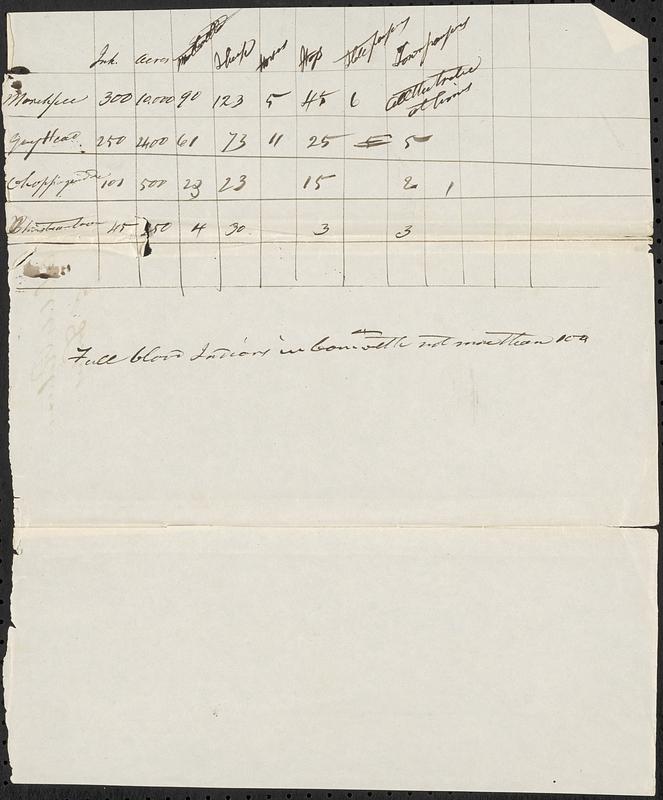 Inh. Acres Neat cattle Sheep Horses Hogs State paupers Town paupers
Marshpee 300 10.000 90 123 5 45 6 at Gurus
Gay Head 250 2400 61 73 11 25 5
Choppequiddic 101 500 23 23 15 2 1
Christiantown 45 350 4 30 3 3
Full blood Indians in Comwealth not more than 100